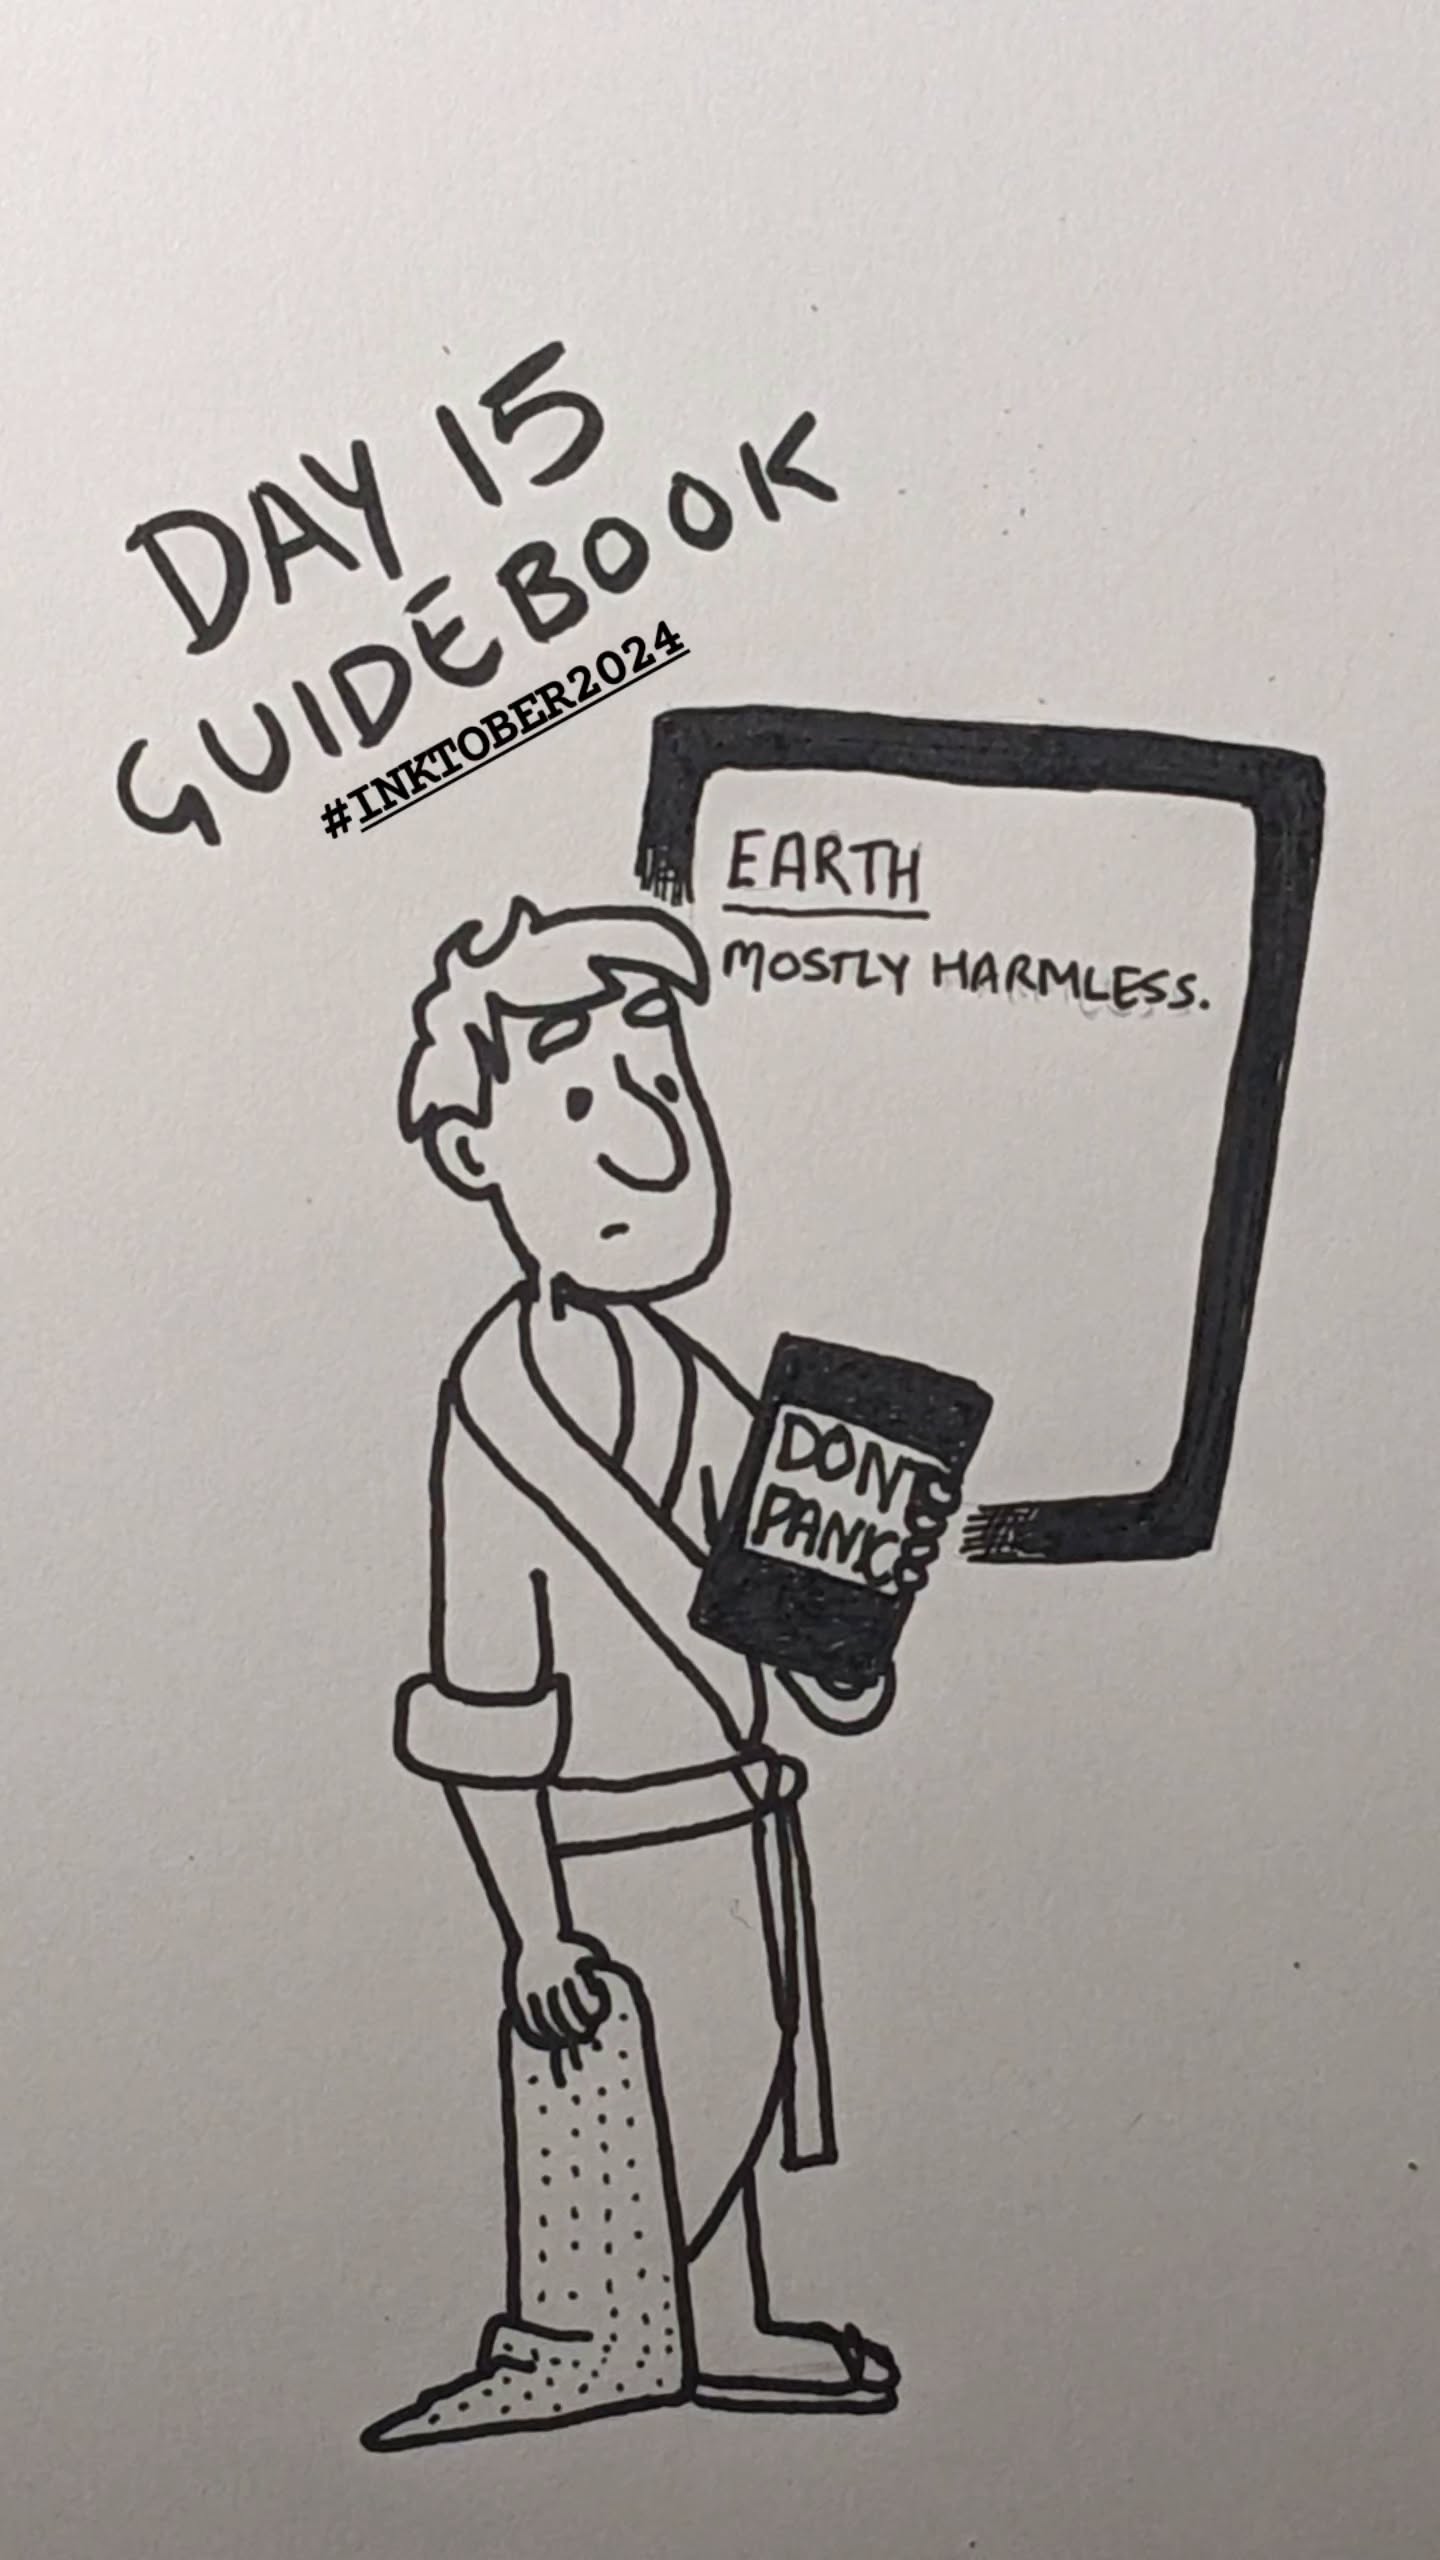 DAY 15
GUIDEBOOK
#INKTOBER2024
EARTH
MOSTLY HARMLESS.
DONT
PANIC